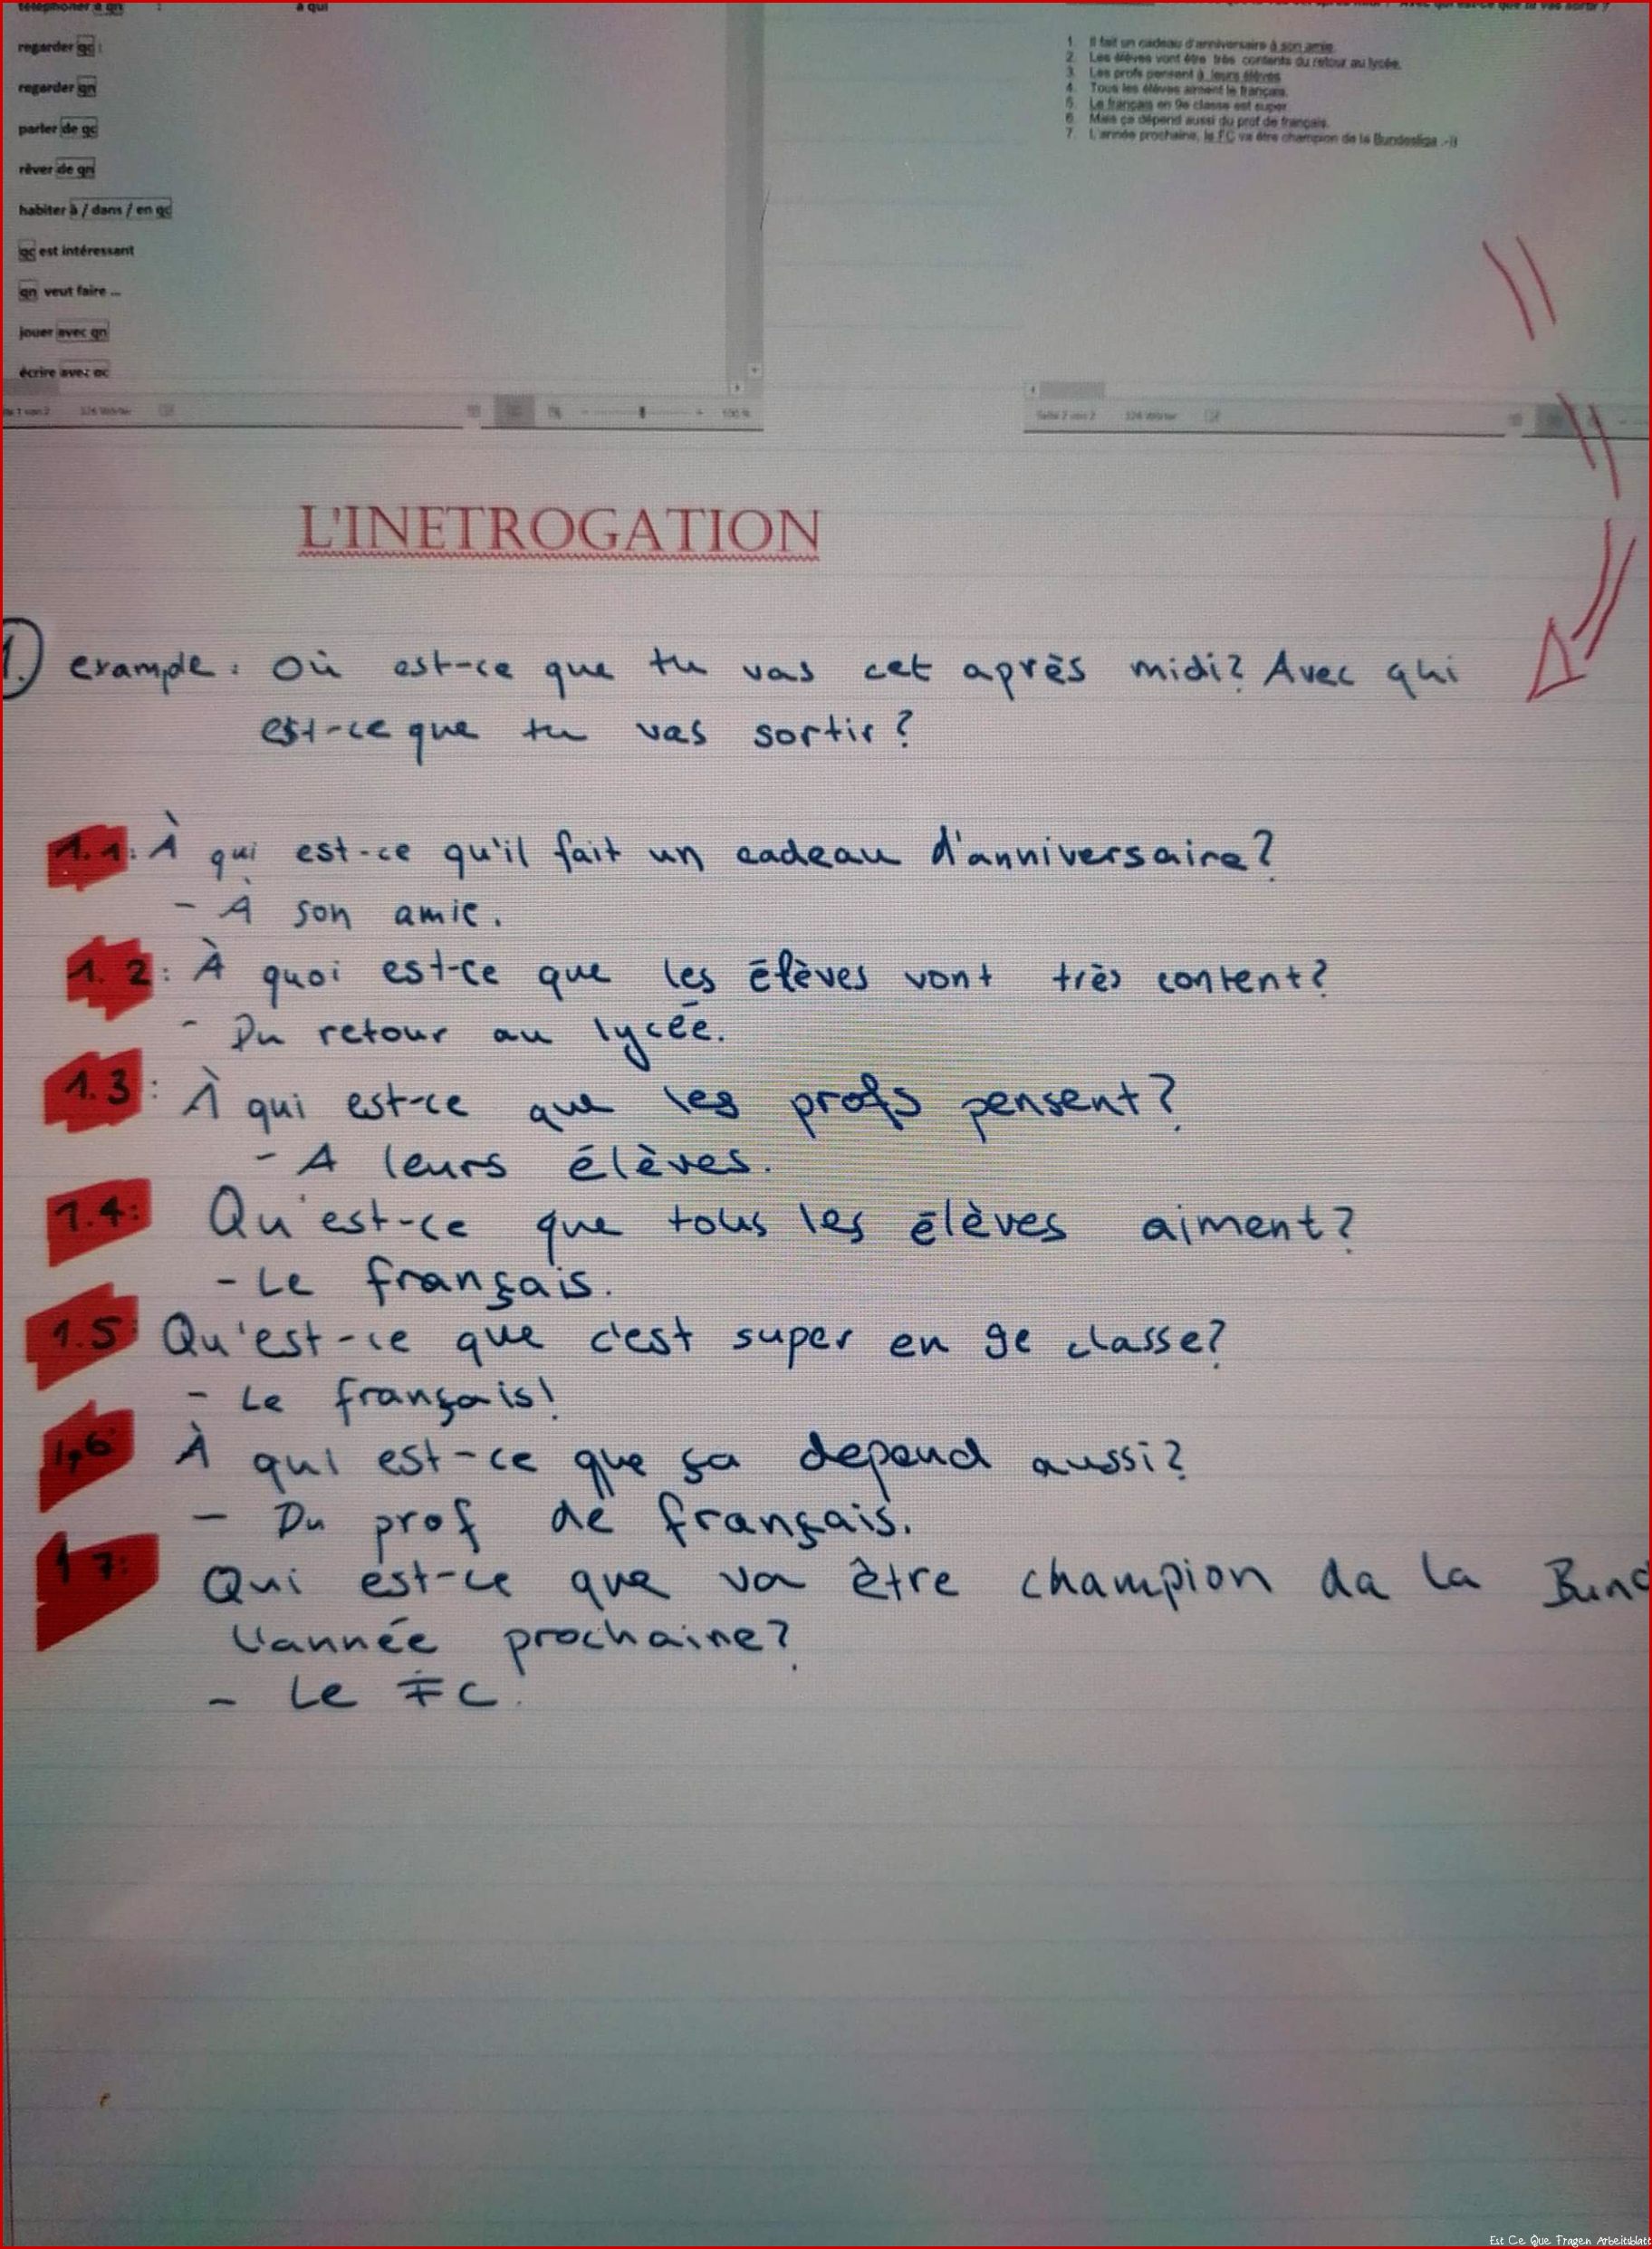 téléphoner à qn : à qui
regarder qc :
regarder qn
parler de qc
rêver de qn
habiter à / dans / en qc
qc est intéressant
qn veut faire ...
jouer avec qn
écrire avec qc
326 Wörter
100 %
1. Il fait un cadeau d'anniversaire à son amie.
2. Les élèves vont être très contents du retour au lycée.
3. Les profs pensent à leurs élèves
4. Tous les élèves aiment le français.
5. Le français en 9e classe est super.
6. Mais ça dépend aussi du prof de français.
7. L'année prochaine, le FC va être champion de la Bundesliga :-))
Seite 2 von 2 326 Wörter
L'INETROGATION
1.) example: Où est-ce que tu vas cet après midi? Avec qui
est-ce que tu vas sortir?
1.1: À qui est-ce qu'il fait un cadeau d'anniversaire?
- À son amie.
1.2: À quoi est-ce que les élèves vont très content?
- Du retour au lycée.
1.3: À qui est-ce que les profs pensent?
- A leurs élèves.
1.4: Qu'est-ce que tous les élèves aiment?
- Le français.
1.5 Qu'est-ce que c'est super en 9e classe?
- Le français!
1,6 À qui est-ce que ça depend aussi?
- Du prof de français.
1 7: Qui est-ce que va être champion da la Bund
l'année prochaine?
- Le FC.
Est Ce Que Fragen Arbeitsblatt